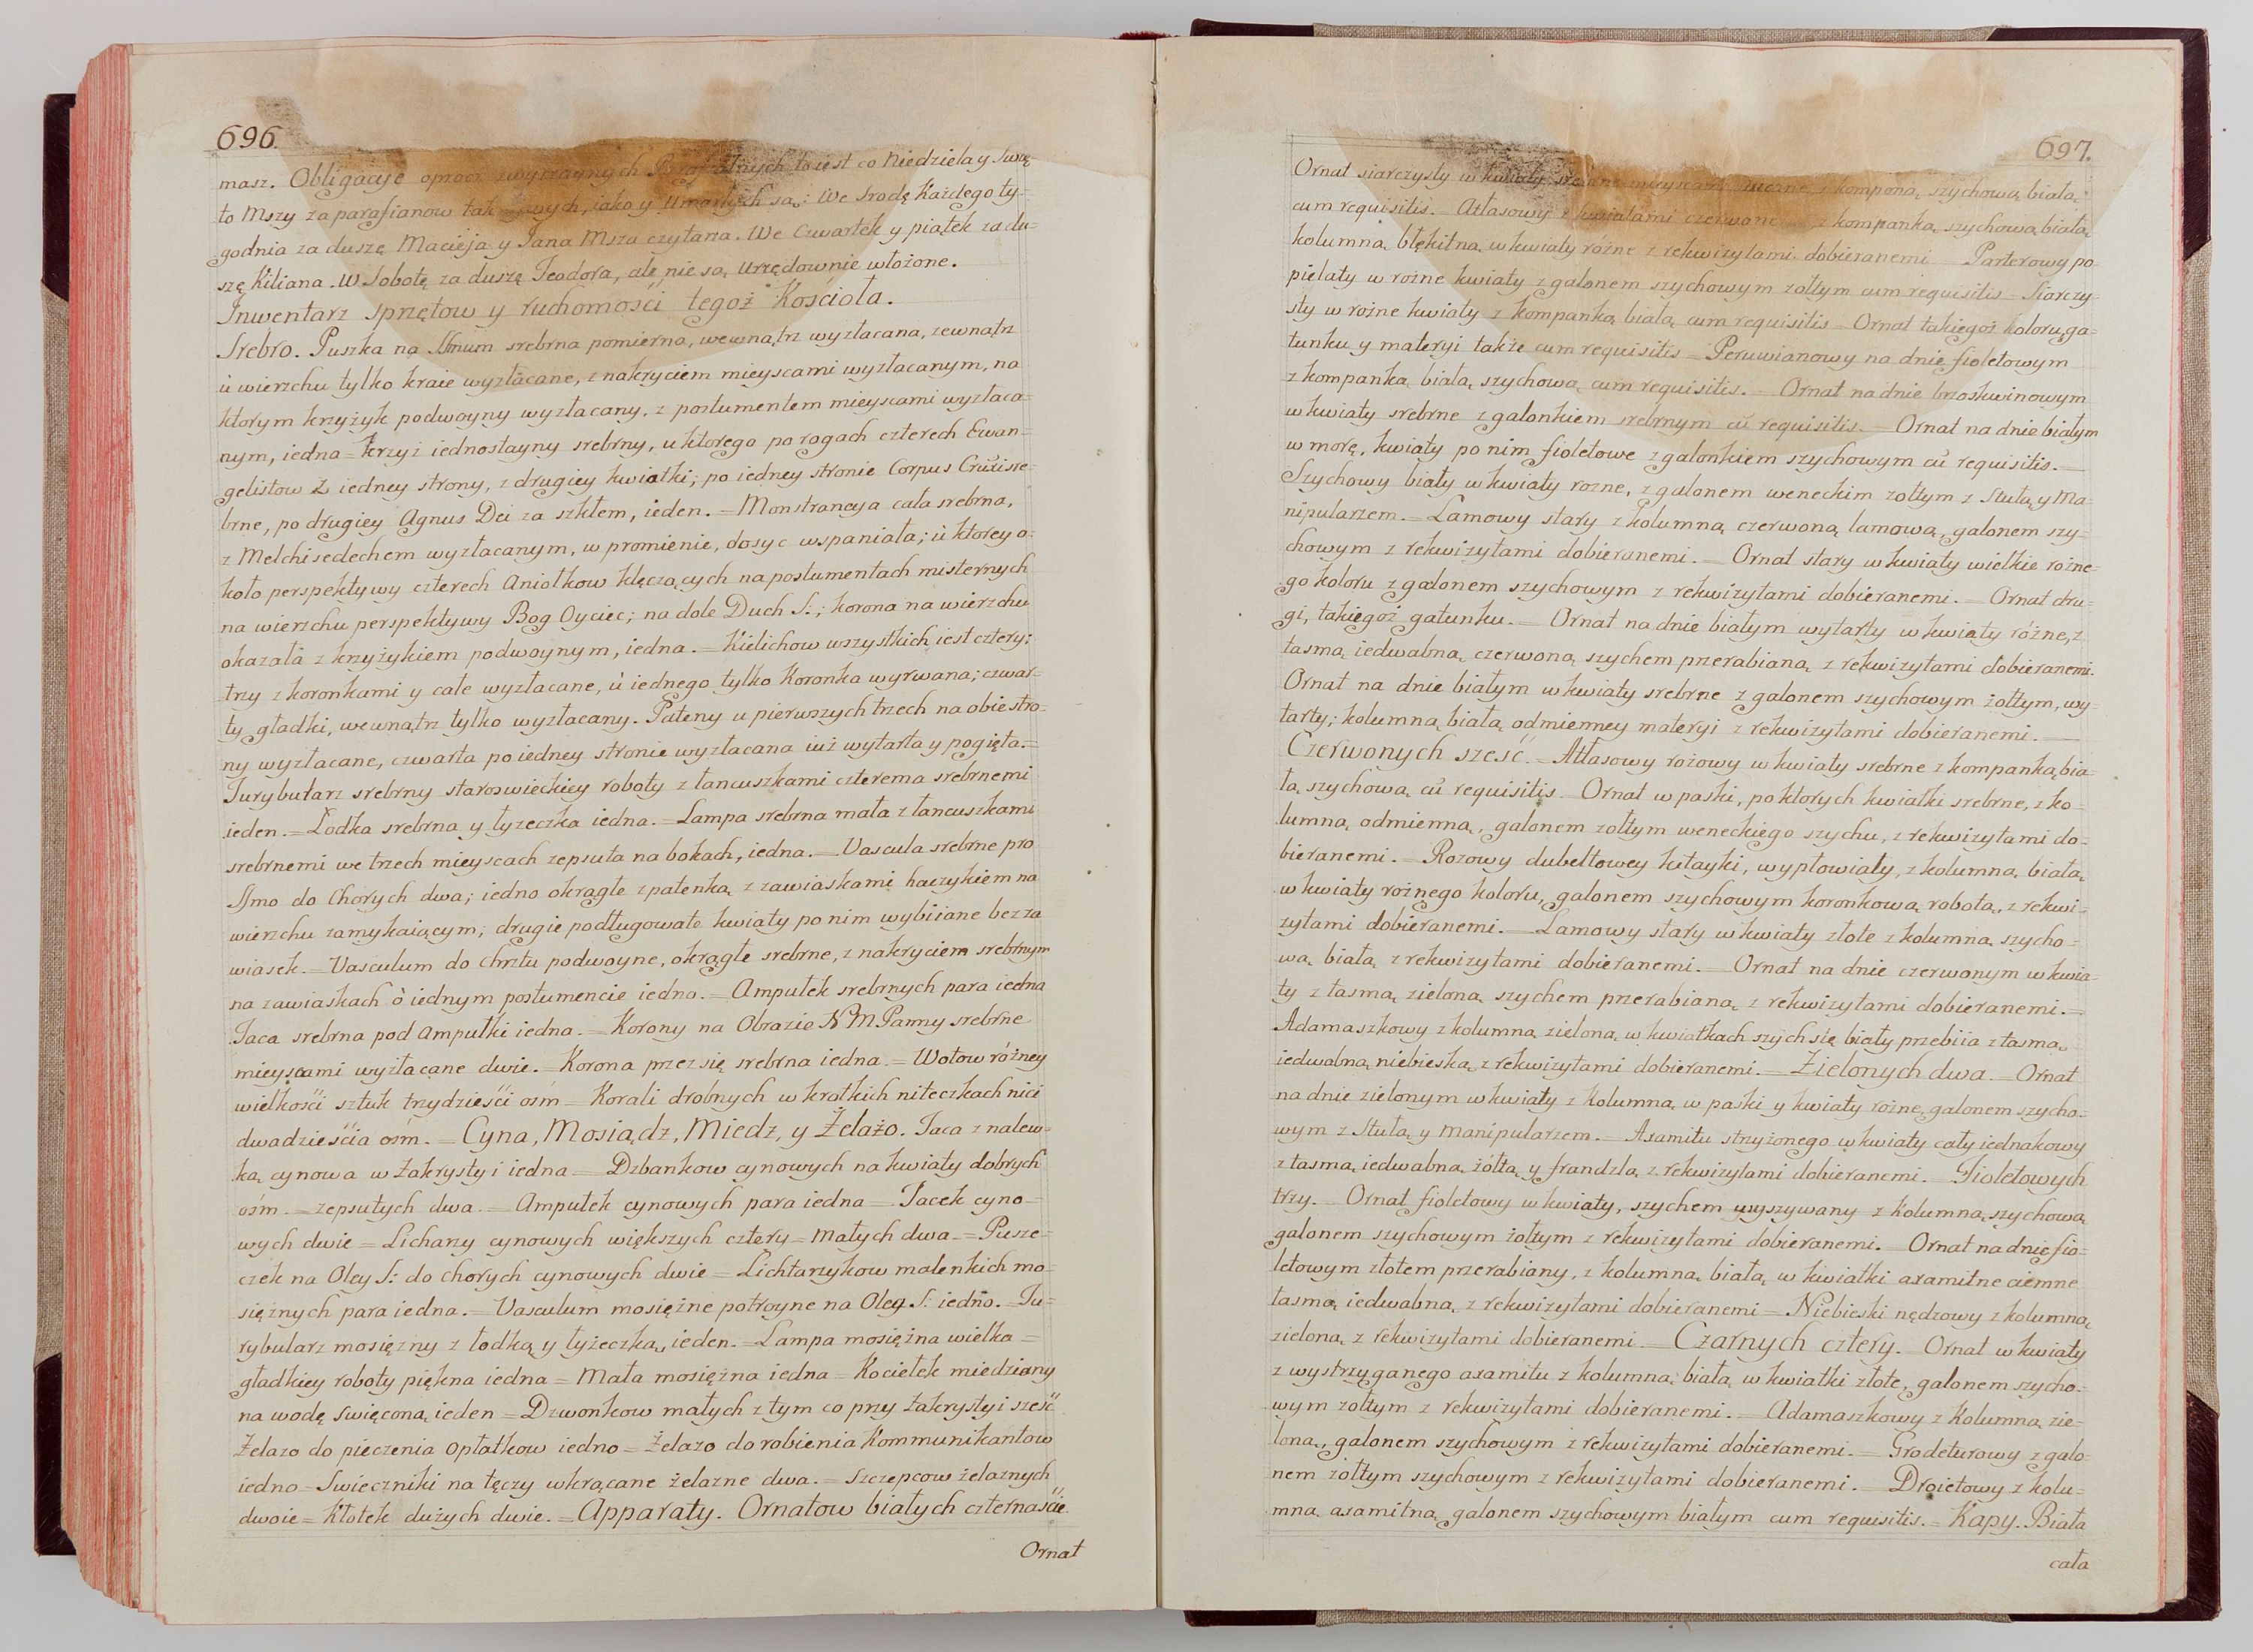 696.
masz. Obligacye oprocz zwyczaynych Parafialnych to iest co Niedziela y Swię
to Mszy za parafianow tak żywych, iako y Umarłych są: We Srodę Każdego ty-
godnia za duszę Macieja y Jana Msza czytana. We Czwartek y piątek za du-
szę Kiliana. W Sobotę za duszę Teodora, ale nie są urzędownie włożone.
Inwentarz sprzętow y ruchomości tegoż Kościoła.
Srebro. Puszka na SSmum srebrna pomierna, wewnątrz wyzłacana, zewnątrz
ù wierzchu tylko kraie wyzłacane, z nakryciem mieyscami wyzłacanym, na
ktorym krzyżyk podwoyny wyzłacany, z postumentem mieyscami wyzłaca=
nym, iedna = Krzyż iednostayny srebrny, u ktorego po rogach czterech Ewan=
gelistow z iedney strony, z drugiey kwiatki; po iedney stronie Corpus Crūi sre=
brne, po drugiey Agnus Dei za szkłem, ieden. = Monstrancya cała srebrna,
z Melchisedechem wyzłacanym, w promienie, dosyc wspaniała; ù ktorey o=
koło perspektywy czterech Aniołkow klęczących na postumentach misternych
na wierzchu perspektywy Bog Oyciec; na dole Duch S:; korona na wierzchu
okazała z krzyżykiem podwoynym, iedna. = Kielichow wszystkich iest cztery:
trzy z koronkami y całe wyzłacane, ù iednego tylko Koronka wyrwana; czwar=
ty gładki, wewnątrz tylko wyzłacany. Pateny u pierwszych trzech na obie stro=
ny wyzłacane, czwarta po iedney stronie wyzłacana iuż wytarta y pogięta. =
Turybularz srebrny staroswieckiey roboty z łancuszkami czterema srebrnemi
ieden. = Łodka srebrna y łyzeczka iedna. = Lampa srebrna mała z łancuszkami
srebrnemi we trzech mieyscach zepsuta na bokach, iedna. = Vascula srebrne pro
SSmo do Chorych dwa; iedno okrągłe z patenką z zawiaskami haczykiem na
wierzchu zamykaiącym; drugie podługowate kwiaty po nim wybiiane bez za
wiasek. = Vasculum do Chrztu podwoyne, okrągłe srebrne, z nakryciem srebrnym
na zawiaskach ò iednym postumencie iedno. = Ampułek srebrnych para iedna
Taca srebrna pod Ampułki iedna. = Korony na Obrazie N M Panny srebrne
mieyscami wyzłacane dwie. = Korona przez się srebrna iedna = Wotow różney
wielkości sztuk trzydzieści ośm = Korali drobnych w krotkich niteczkach nici
dwadzieścia ośm. = Cyna, Mosiądz, Miedz, y Żelazo. Taca z nalew=
ką cynowa w Zakrystyi iedna = Dzbankow cynowych na kwiaty dobrych
ośm. = zepsutych dwa. = Ampułek cynowych para iedna = Tacek cyno=
wych dwie = Licharzy cynowych większych cztery = małych dwa = Pusze=
czek na Oley S: do chorych cynowych dwie = Lichtarzykow malenkich mo=
siężnych para iedna. = Vasculum mosiężne potroyne na Oley S: iedno. = Tu=
rybularz mosiężny z łodką y łyżeczką, ieden. = Lampa mosiężna wielka =
gładkiey roboty piękna iedna = Mała mosiężna iedna = Kociełek miedziany
na wodę swięconą ieden = Dzwonkow małych z tym co przy Zakrystyi sześć
Żelazo do pieczenia opłatkow iedno = Żelazo do robienia Kommunikantow
iedno = Swieczniki na tęczy wkrącane żelazne dwa. = Szczepcow żelaznych
dwoie = Kłotek dużych dwie. = Apparaty. Ornatow białych czternaście.
Ornat
697.
Ornat siarczysty w kwiaty srebrne mieyscami z komponą szychową białą,
cum requisitis. = Atłasowy z kwiatami czerwone z kompanką szychową białą
kolumną błękitną w kwiaty różne z rekwizytami dobieranemi = Parterowy po
pielaty w rożne kwiaty z galonem szychowym zołtym cum requisitis = Siarczy=
sty w rożne kwiaty z kompanką białą cum requisitis = Ornat takiegoż koloru, ga=
tunku y materyi także cum requisitis = Peruwianowy na dnie fioletowym
z kompanką białą szychową cum requisitis. = Ornat na dnie brzoskwinowym
w kwiaty srebrne z galonkiem srebrnym cū requisitis. = Ornat na dnie białym
w morę, kwiaty po nim fioletowe z galonkiem szychowym cū requisitis. =
Szychowy biały w kwiaty rozne, z galonem weneckim zołtym z Stułą y Ma=
nipularzem. = Lamowy stary z kolumną czerwoną lamową, galonem szy=
chowym z rekwizytami dobieranemi. = Ornat stary w kwiaty wielkie rożne=
go koloru z galonem szychowym z rekwizytami dobieranemi. = Ornat dru=
gi, takiegoż gatunku. = Ornat na dnie białym wytarty w kwiaty różne, z
tasmą iedwabną czerwoną szychem przerabianą z rekwizytami dobieranemi.
Ornat na dnie białym w kwiaty srebrne z galonem szychowym żołtym, wy=
tarty; kolumną białą odmienney materyi z rekwizytami dobieranemi. =
Czerwonych sześć. = Atłasowy rożowy w kwiaty srebrne z kompanką bia=
łą, szychową cū requisitis = Ornat w paski, po ktorych kwiatki srebrne, z ko=
lumną odmienną, galonem zołtym weneckiego szychu, z rekwizytami do=
bieranemi. = Rozowy dubeltowey kitayki, wypłowiały, z kolumną białą
w kwiaty rożnego koloru, galonem szychowym koronkową robotą, z rekwi=
zytami dobieranemi. = Lamowy stary w kwiaty złote z kolumną szycho=
wą białą z rekwizytami dobieranemi. = Ornat na dnie czerwonym w kwia=
ty z tasmą zieloną szychem przerabianą z rekwizytami dobieranemi. =
Adamaszkowy z kolumną zieloną w kwiatkach szych się biały przebiia z tasmą
iedwabną niebieską z rekwizytami dobieranemi. = Zielonych dwa. = Ornat
na dnie zielonym w kwiaty z Kolumną w paski y kwiaty rożne, galonem szycho=
wym z Stułą y Manipularzem. = Axamitu strzyżonego w kwiaty cały iednakowy
z tasmą iedwabną żółtą y frandzlą z rekwizytami dobieranemi. = Fioletowych
trzy. = Ornat fioletowy w kwiaty, szychem wyszywany z Kolumną szychową
galonem szychowym żołtym z rekwizytami dobieranemi. = Ornat na dnie fio=
letowym złotem przerabiany, z kolumną białą w kwiatki axamitne ciemne
tasmą iedwabną z rekwizytami dobieranemi = Niebieski nędzowy z kolumną
zieloną z rekwizytami dobieranemi = Czarnych cztery. = Ornat w kwiaty
z wystrzyganego axamitu z kolumną białą w kwiatki złote, galonem szycho=
wym zołtym z rekwizytami dobieranemi. = Adamaszkowy z Kolumną zie=
loną, galonem szychowym z rekwizytami dobieranemi. = Grodeturowy z galo=
nem żołtym szychowym z rekwizytami dobieranemi. = Droietowy z kolu=
mną axamitną galonem szychowym białym cum requisitis. = Kapy. Biała
cała